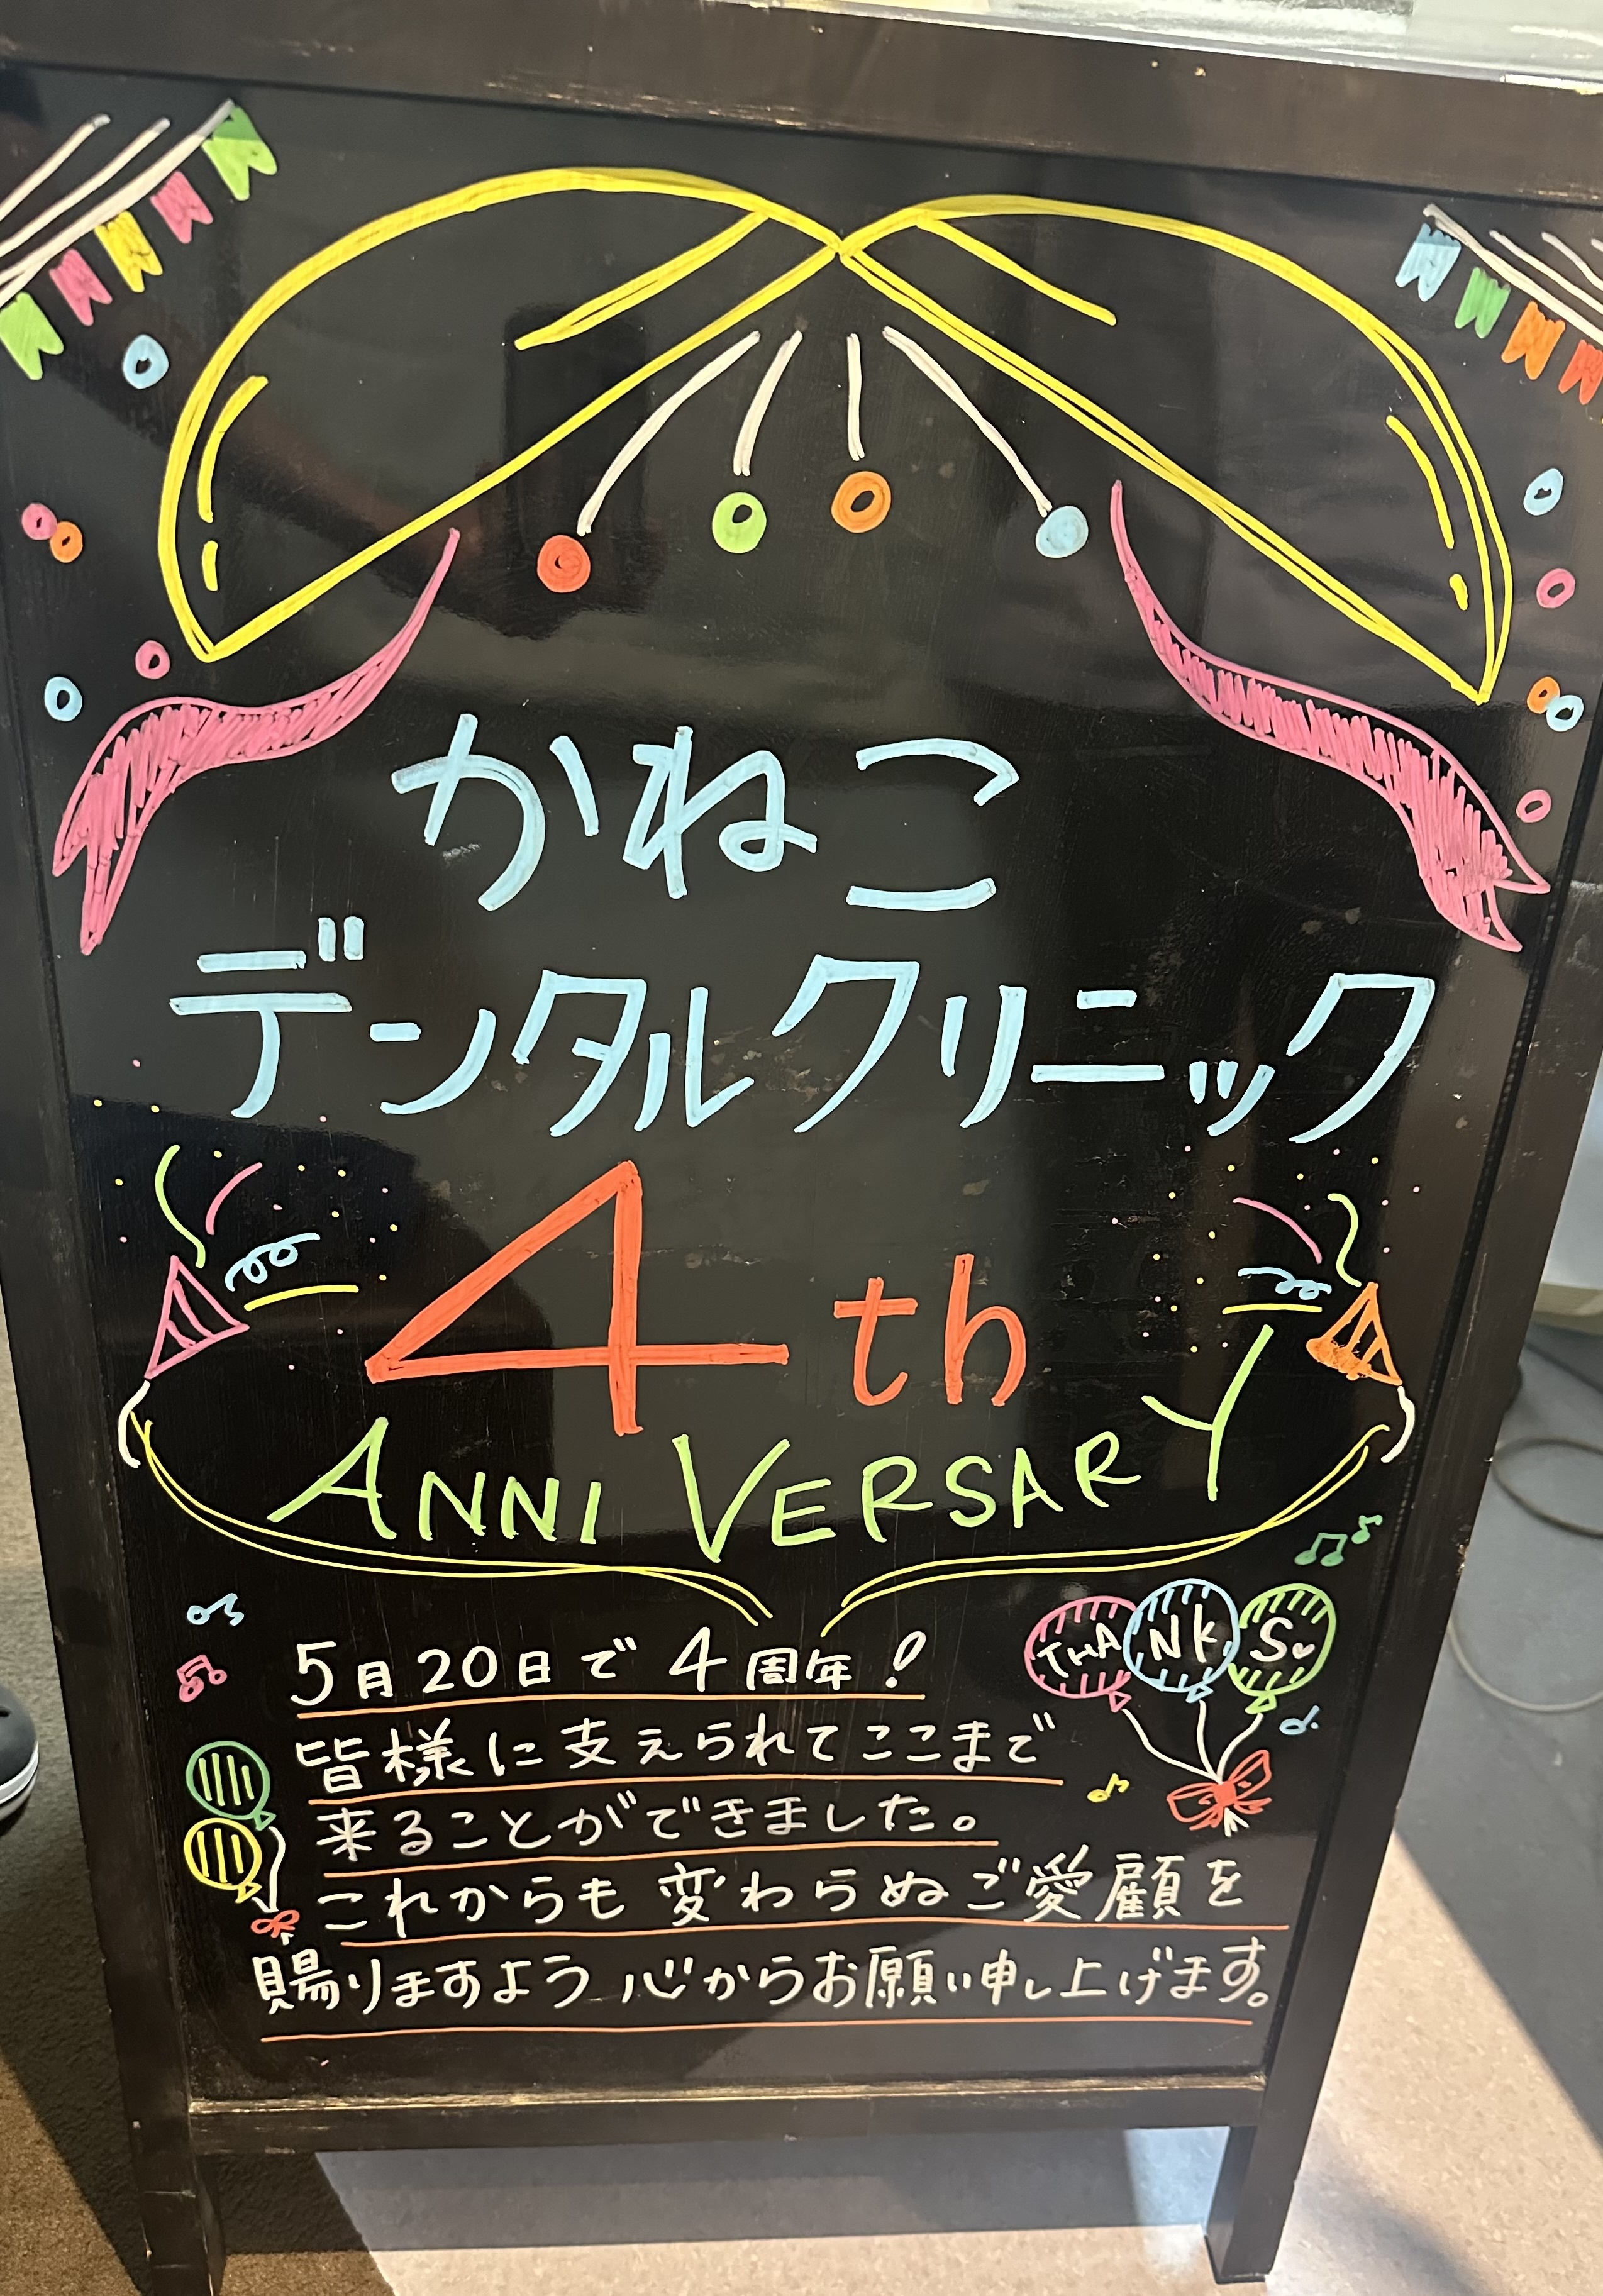 かねこ
デンタルクリニック
4th
ANNIVERSARY
THANKS
5月20日で4周年!
皆様に支えられてここまで
来ることができました。
これからも変わらぬご愛顧を
賜りますよう心からお願い申し上げます。